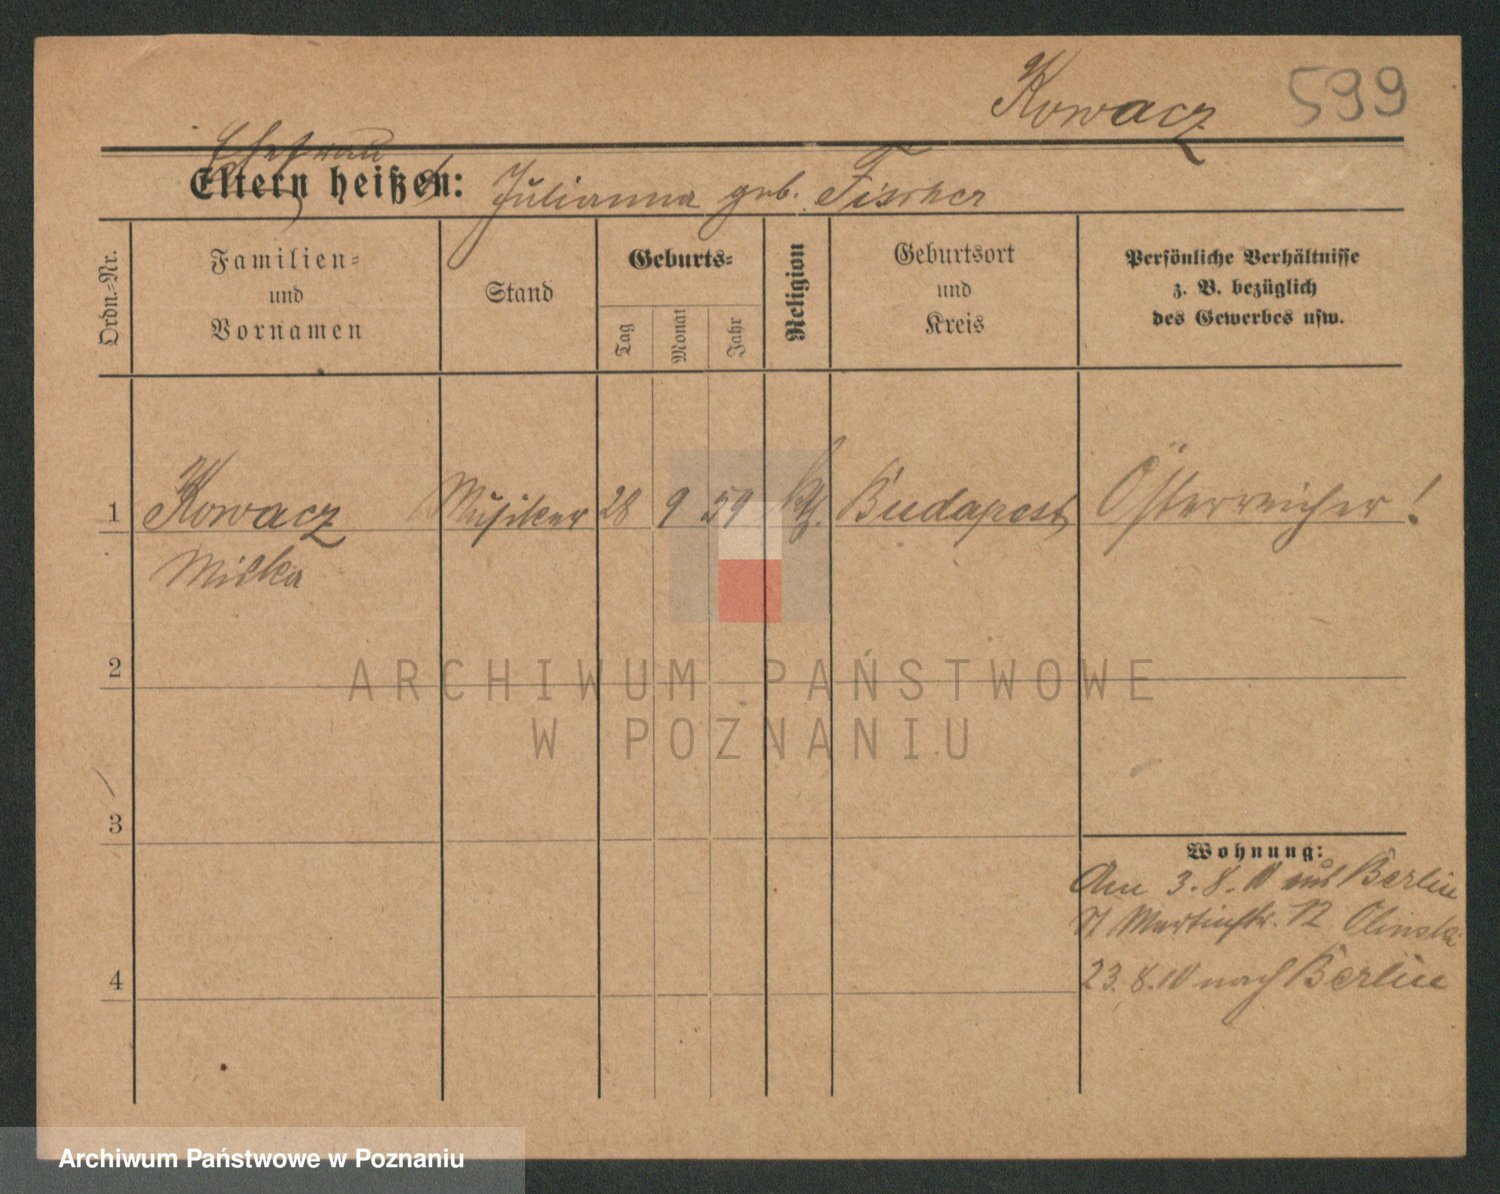 Kowacz 599
Ehefrau
Eltern heißen: Julianna geb. Fischer
Ordn.-Nr.
Familien-
und
Vornamen
Stand
Geburts-
Tag
Monat
Jahr
Religion
Geburtsort
und
Kreis
Persönliche Verhältnisse
z. B. bezüglich
des Gewerbes usw.
1 Kowacz Musiker 28 9 59 Budapest Österreicher!
Milka
2
ARCHIWUM PAŃSTWOWE
W POZNANIU
3
Wohnung:
Am 3.8.10 aus Berlin
Martinstr. 12
4
23.8.10 nach Berlin
Archiwum Państwowe w Poznaniu